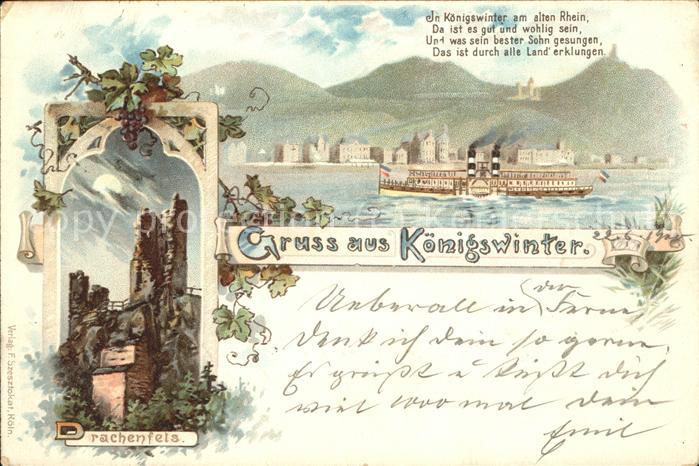 In Königswinter am alten Rhein,
Da ist es gut und wohlig sein,
Und was sein bester Sohn gesungen,
Das ist durch alle Land' erklungen.
Gruss aus Königswinter.
Ueberall in der Ferne
Denk ich dein so gerne
Es grüßt u küßt dich
viel 1000 mal dein
Emil
Drachenfels.
Verlag: F. Szesztokat, Köln.